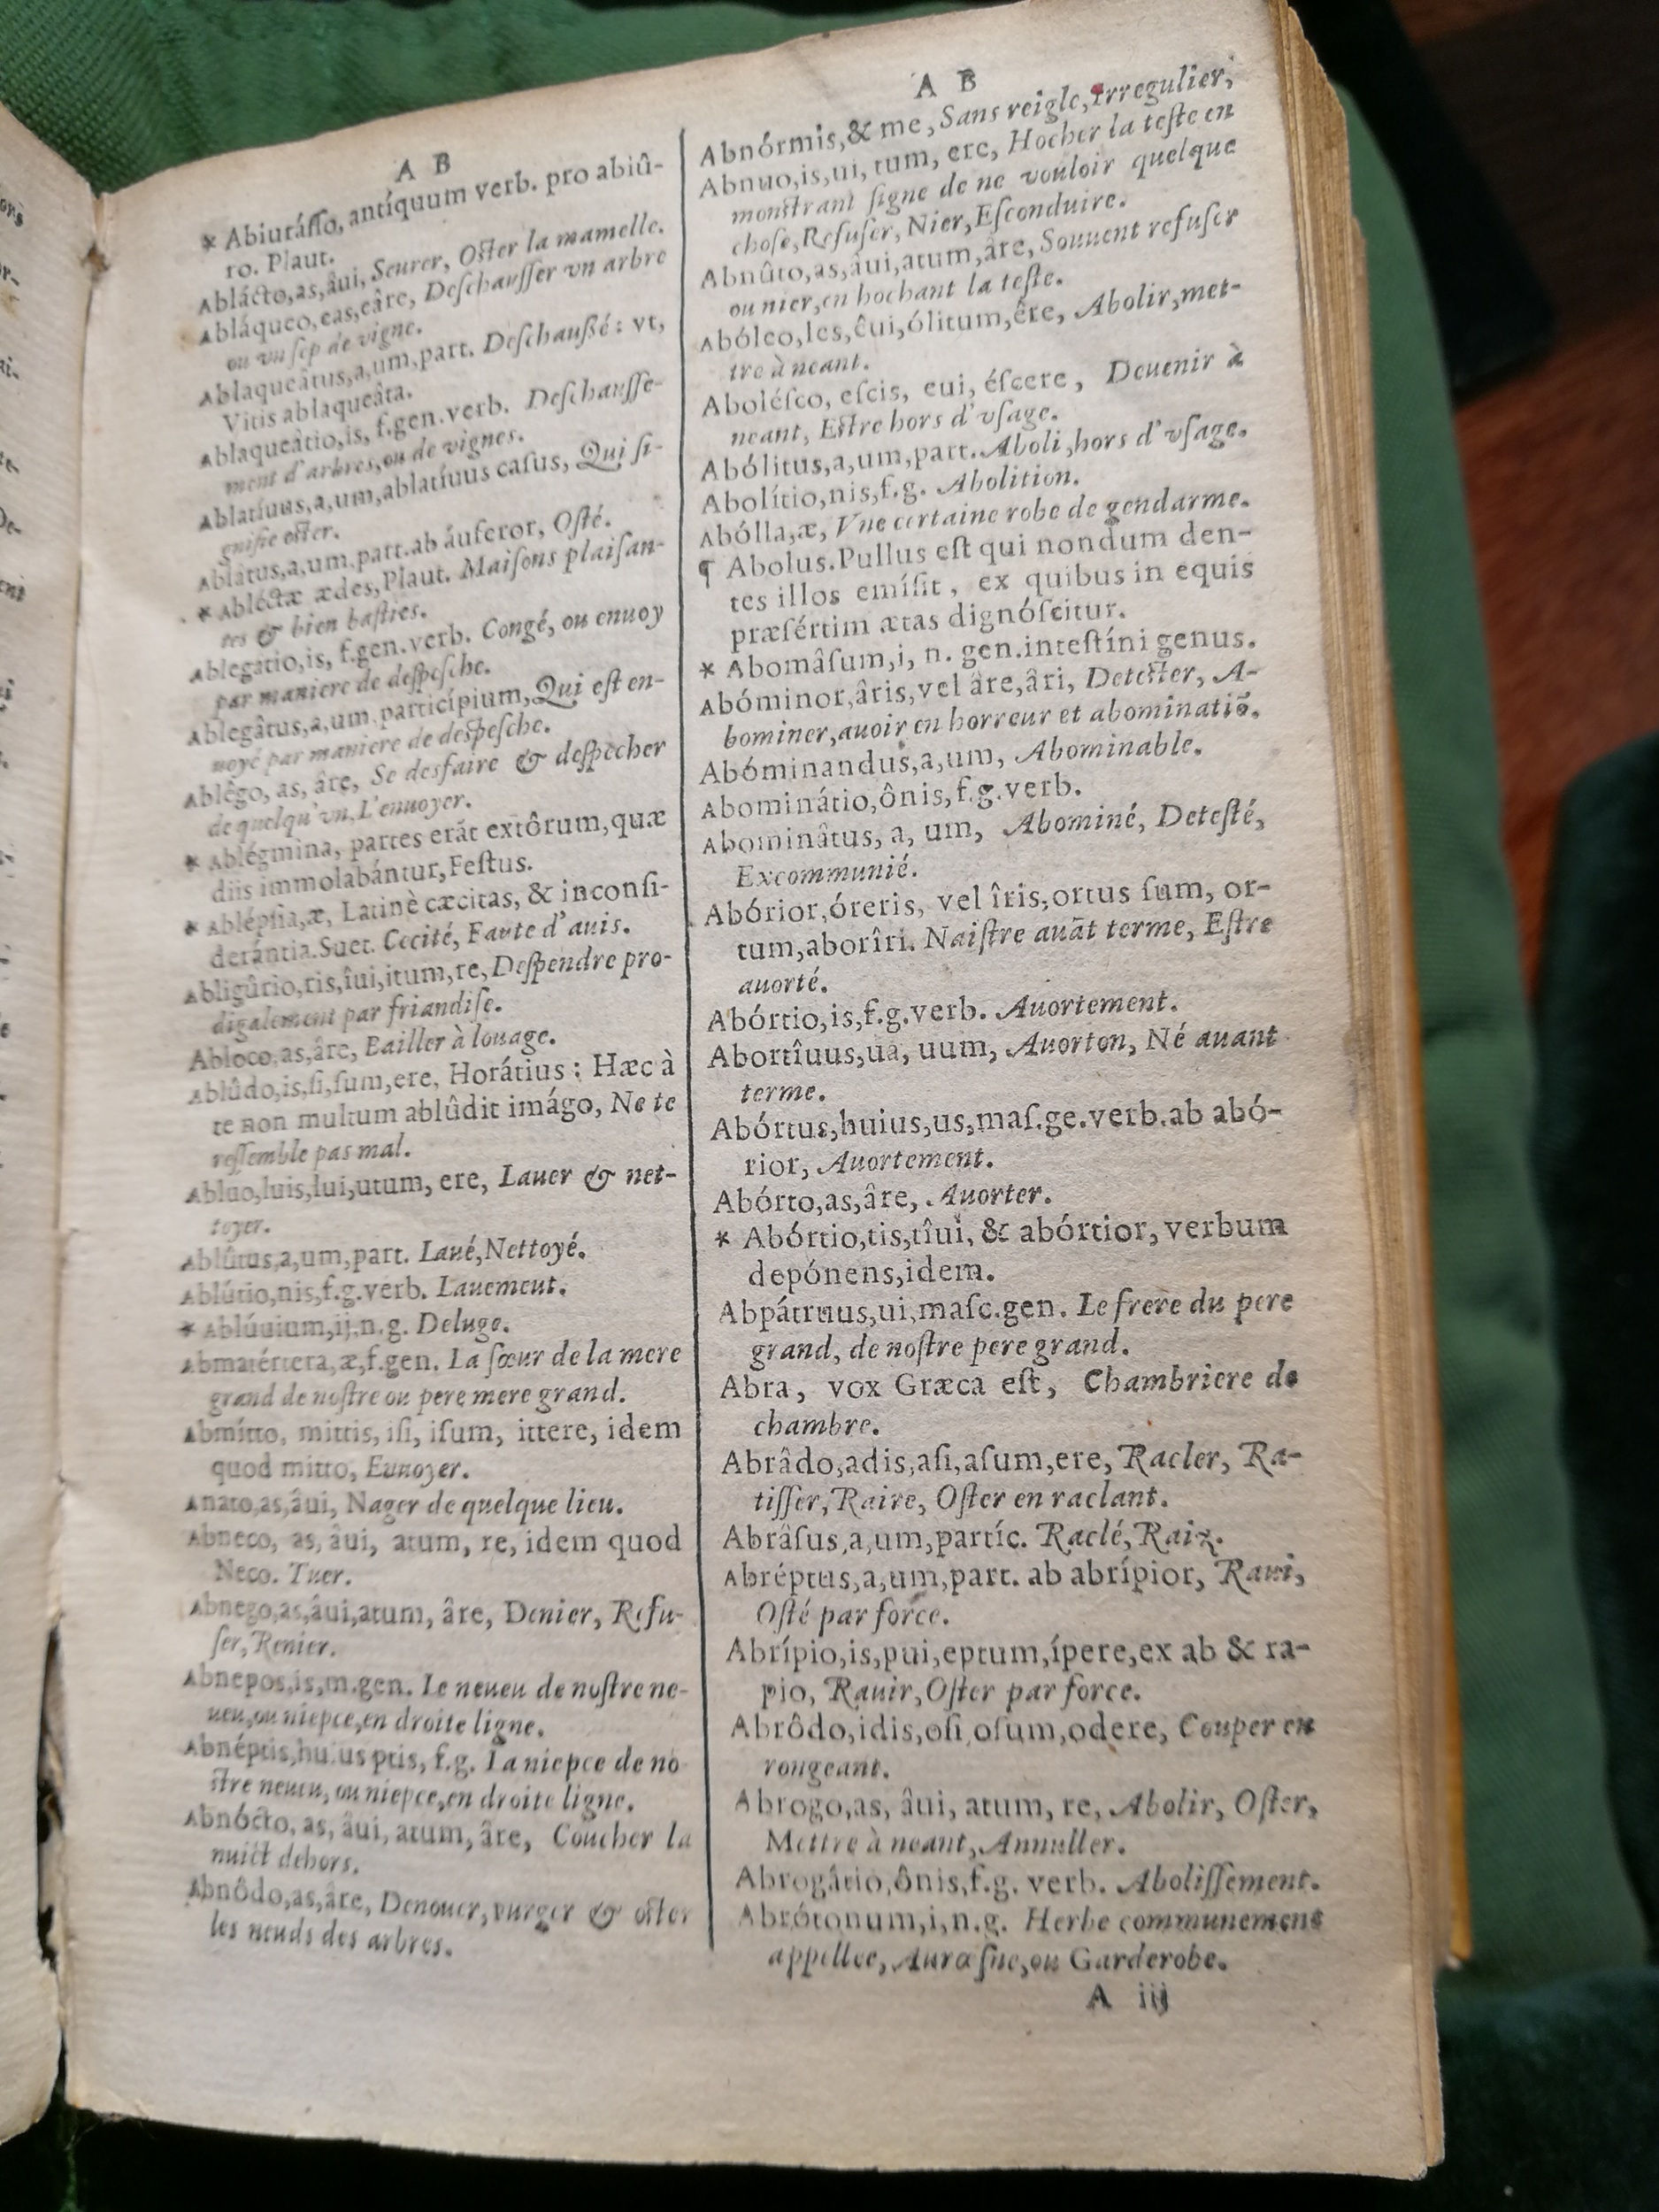 A B
* Abiurásso, antíquum verb. pro abiû-
ro. Plaut.
Ablácto,as,âui, Seurer, Oster la mamelle.
Abláqueo,eas,eâre, Deschausser vn arbre
ou vn sep de vigne.
Ablaqueâtus,a,um,part. Deschaußé: vt,
Vitis ablaqueâta.
Ablaqueâtio,is, f.gen.verb. Deschausse-
ment d'arbres,ou de vignes.
Ablatíuus,a,um,ablatíuus casus, Qui si-
gnifie oster.
Ablâtus,a,um.part.ab áuferor, Osté.
* Abléctæ ædes,Plaut. Maisons plaisan-
tes & bien basties.
Ablegatio,is, f.gen.verb. Congé, ou enuoy
par maniere de despesche.
Ablegâtus,a,um.partícipium,Qui est en-
uoyé par maniere de despesche.
Ablêgo, as, âre, Se desfaire & despecher
de quelqu'vn,L'enuoyer.
* Ablégmina, partes erãt extôrum,quæ
diis immolabántur,Festus.
* Ablépsia,æ, Latinè cæcitas, & inconsi-
derántia.Suet. Cecité, Faute d'auis.
Abligûrio,ris,îui,itum,re,Despendre pro-
digalement par friandise.
Abloco,as,âre, Bailler à louage.
Ablûdo,is,si,sum,ere, Horátius: Hæc à
te non multum ablûdit imágo, Ne te
ressemble pas mal.
Abluo,luis,lui,utum, ere, Lauer & net-
toyer.
Ablûtus,a,um,part. Laué,Nettoyé.
Ablútio,nis,f.g.verb. Lauement.
* Ablúuium,ij.n.g. Deluge.
Abmatértera,æ,f.gen. La sœur de la mere
grand de nostre ou pere mere grand.
Abmítto, mittis, isi, isum, ittere, idem
quod mitto, Enuoyer.
Anato,as,âui, Nager de quelque lieu.
Abneco, as, âui, atum, re, idem quod
Neco. Tuer.
Abnego,as,âui,atum, âre, Denier, Refu-
ser,Renier.
Abnepos,is,m.gen. Le neueu de nostre ne-
ueu,ou niepce,en droite ligne.
Abnéptis,huius ptis, f.g. La niepce de no
stre neueu, ou niepce,en droite ligne.
Abnócto, as, âui, atum, âre, Coucher la
nuict dehors.
Abnôdo,as,âre, Denouer,purger & oster
les neuds des arbres.
A B
Abnórmis,& me, Sans reigle,Irregulier,
Abnuo,is,ui, tum, ere, Hocher la teste en
monstrant signe de ne vouloir quelque
chose,Refuser, Nier,Esconduire.
Abnûto,as,âui,atum,âre, Souuent refuser
ou nier,en hochant la teste.
Abóleo,les,êui,ólitum,êre, Abolir,met-
tre à neant.
Abolésco, escis, eui, éscere, Deuenir à
neant, Estre hors d'vsage.
Abólitus,a,um,part. Aboli,hors d'vsage.
Abolítio,nis,f.g. Abolition.
Abólla,æ, Vne certaine robe de gendarme.
¶ Abolus.Pullus est qui nondum den-
tes illos emísit, ex quibus in equis
præsértim ætas dignóscitur.
* Abomâsum,i, n. gen.intestíni genus.
Abóminor,âris,vel âre,âri, Detester, A-
bominer,auoir en horreur et abominatiõ.
Abóminandus,a,um, Abominable.
Abominátio,ônis,f.g.verb.
Abominâtus, a, um, Abominé, Detesté,
Excommunié.
Abórior,óreris, vel îris,ortus sum, or-
tum,aborîri. Naistre auãt terme, Estre
auorté.
Abórtio,is,f.g.verb. Auortement.
Abortîuus,ua, uum, Auorton, Né auant
terme.
Abórtus,huius,us,mas.ge.verb.ab abó-
rior, Auortement.
Abórto,as,âre, Auorter.
* Abórtio,tis,tîui, & abórtior, verbum
depónens,idem.
Abpátruus,ui,masc.gen. Le frere du pere
grand, de nostre pere grand.
Abra, vox Græca est, Chambriere de
chambre.
Abrâdo,adis,asi,asum,ere, Racler, Ra-
tisser,Raire, Oster en raclant.
Abrâsus,a,um,partíc. Raclé,Raiz.
Abréptus,a,um,part. ab abrípior, Raui,
Osté par force.
Abrípio,is,pui,eptum,ípere,ex ab & ra-
pio, Rauir,Oster par force.
Abrôdo,idis,osi,osum,odere, Couper en
rongeant.
Abrogo,as, âui, atum, re, Abolir, Oster,
Mettre à neant,Annuller.
Abrogâtio,ônis,f.g. verb. Abolissement.
Abrótonum,i,n.g. Herbe communement
appellee, Aurosne,ou Garderobe.
A iij